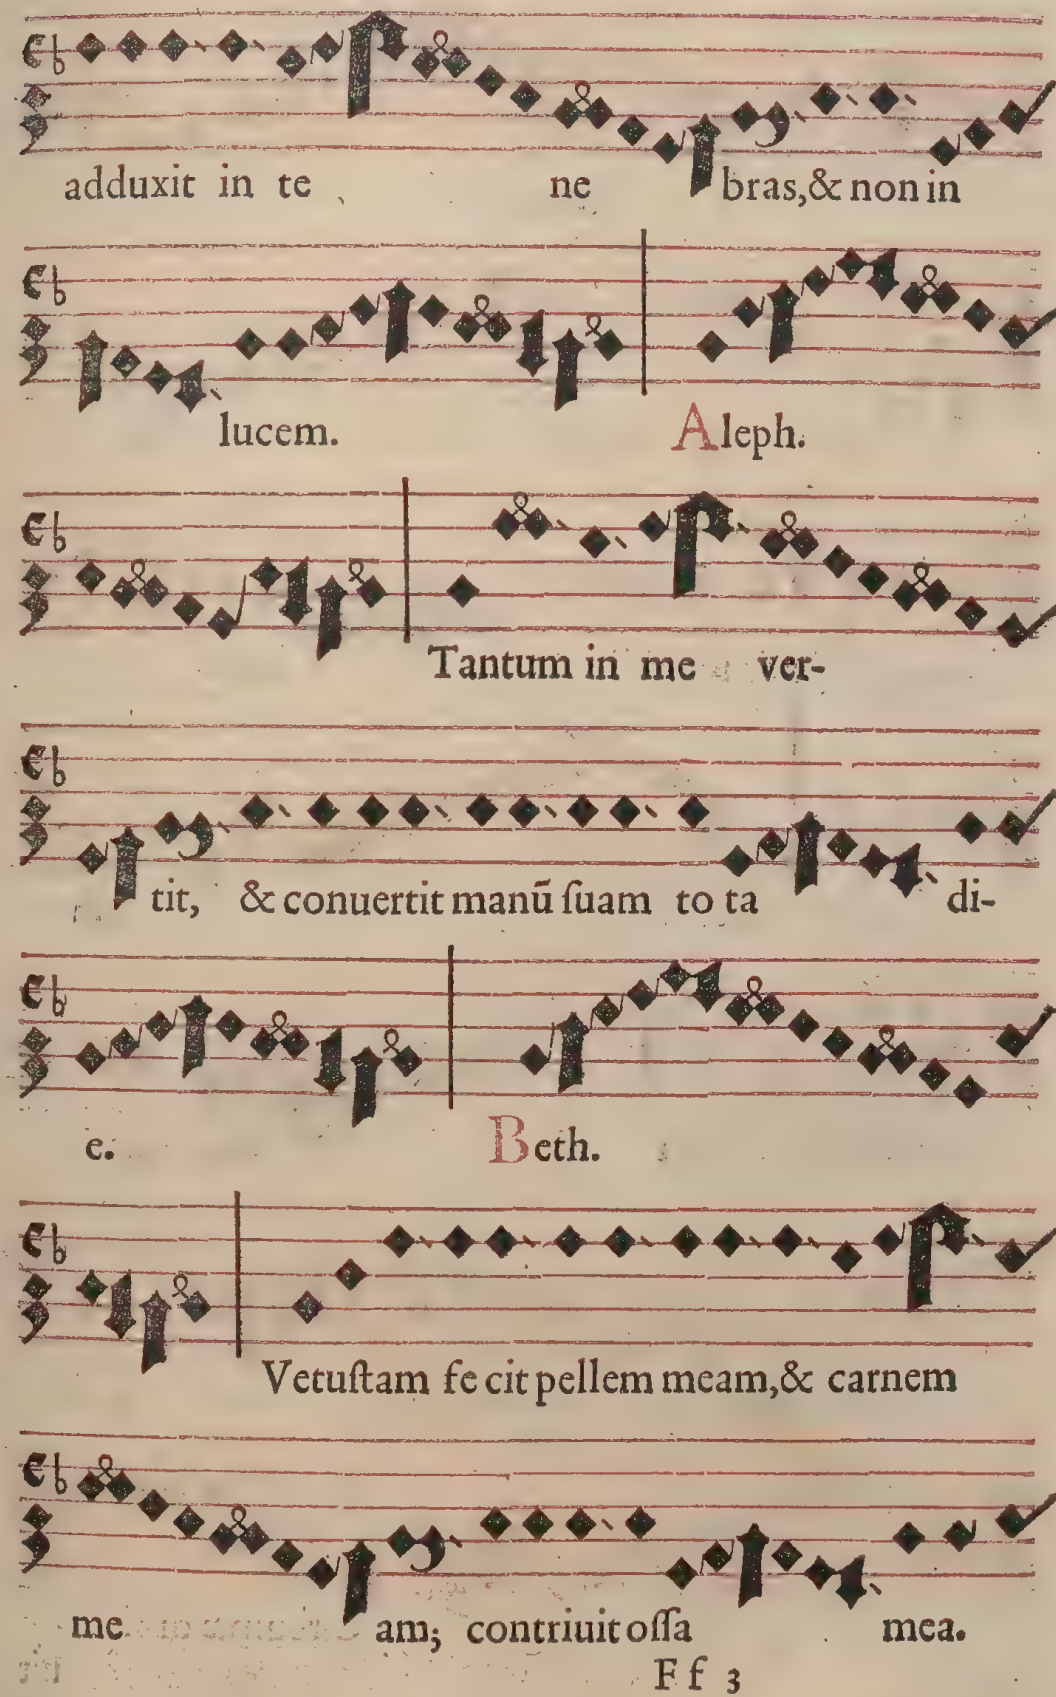 adduxit in te ne bras,& non in
lucem. Aleph.
Tantum in me ver-
tit, & conuertit manū ſuam to ta di-
e. Beth.
Vetuſtam fe cit pellem meam,& carnem
me am; contriuit oſſa mea.
F f 3